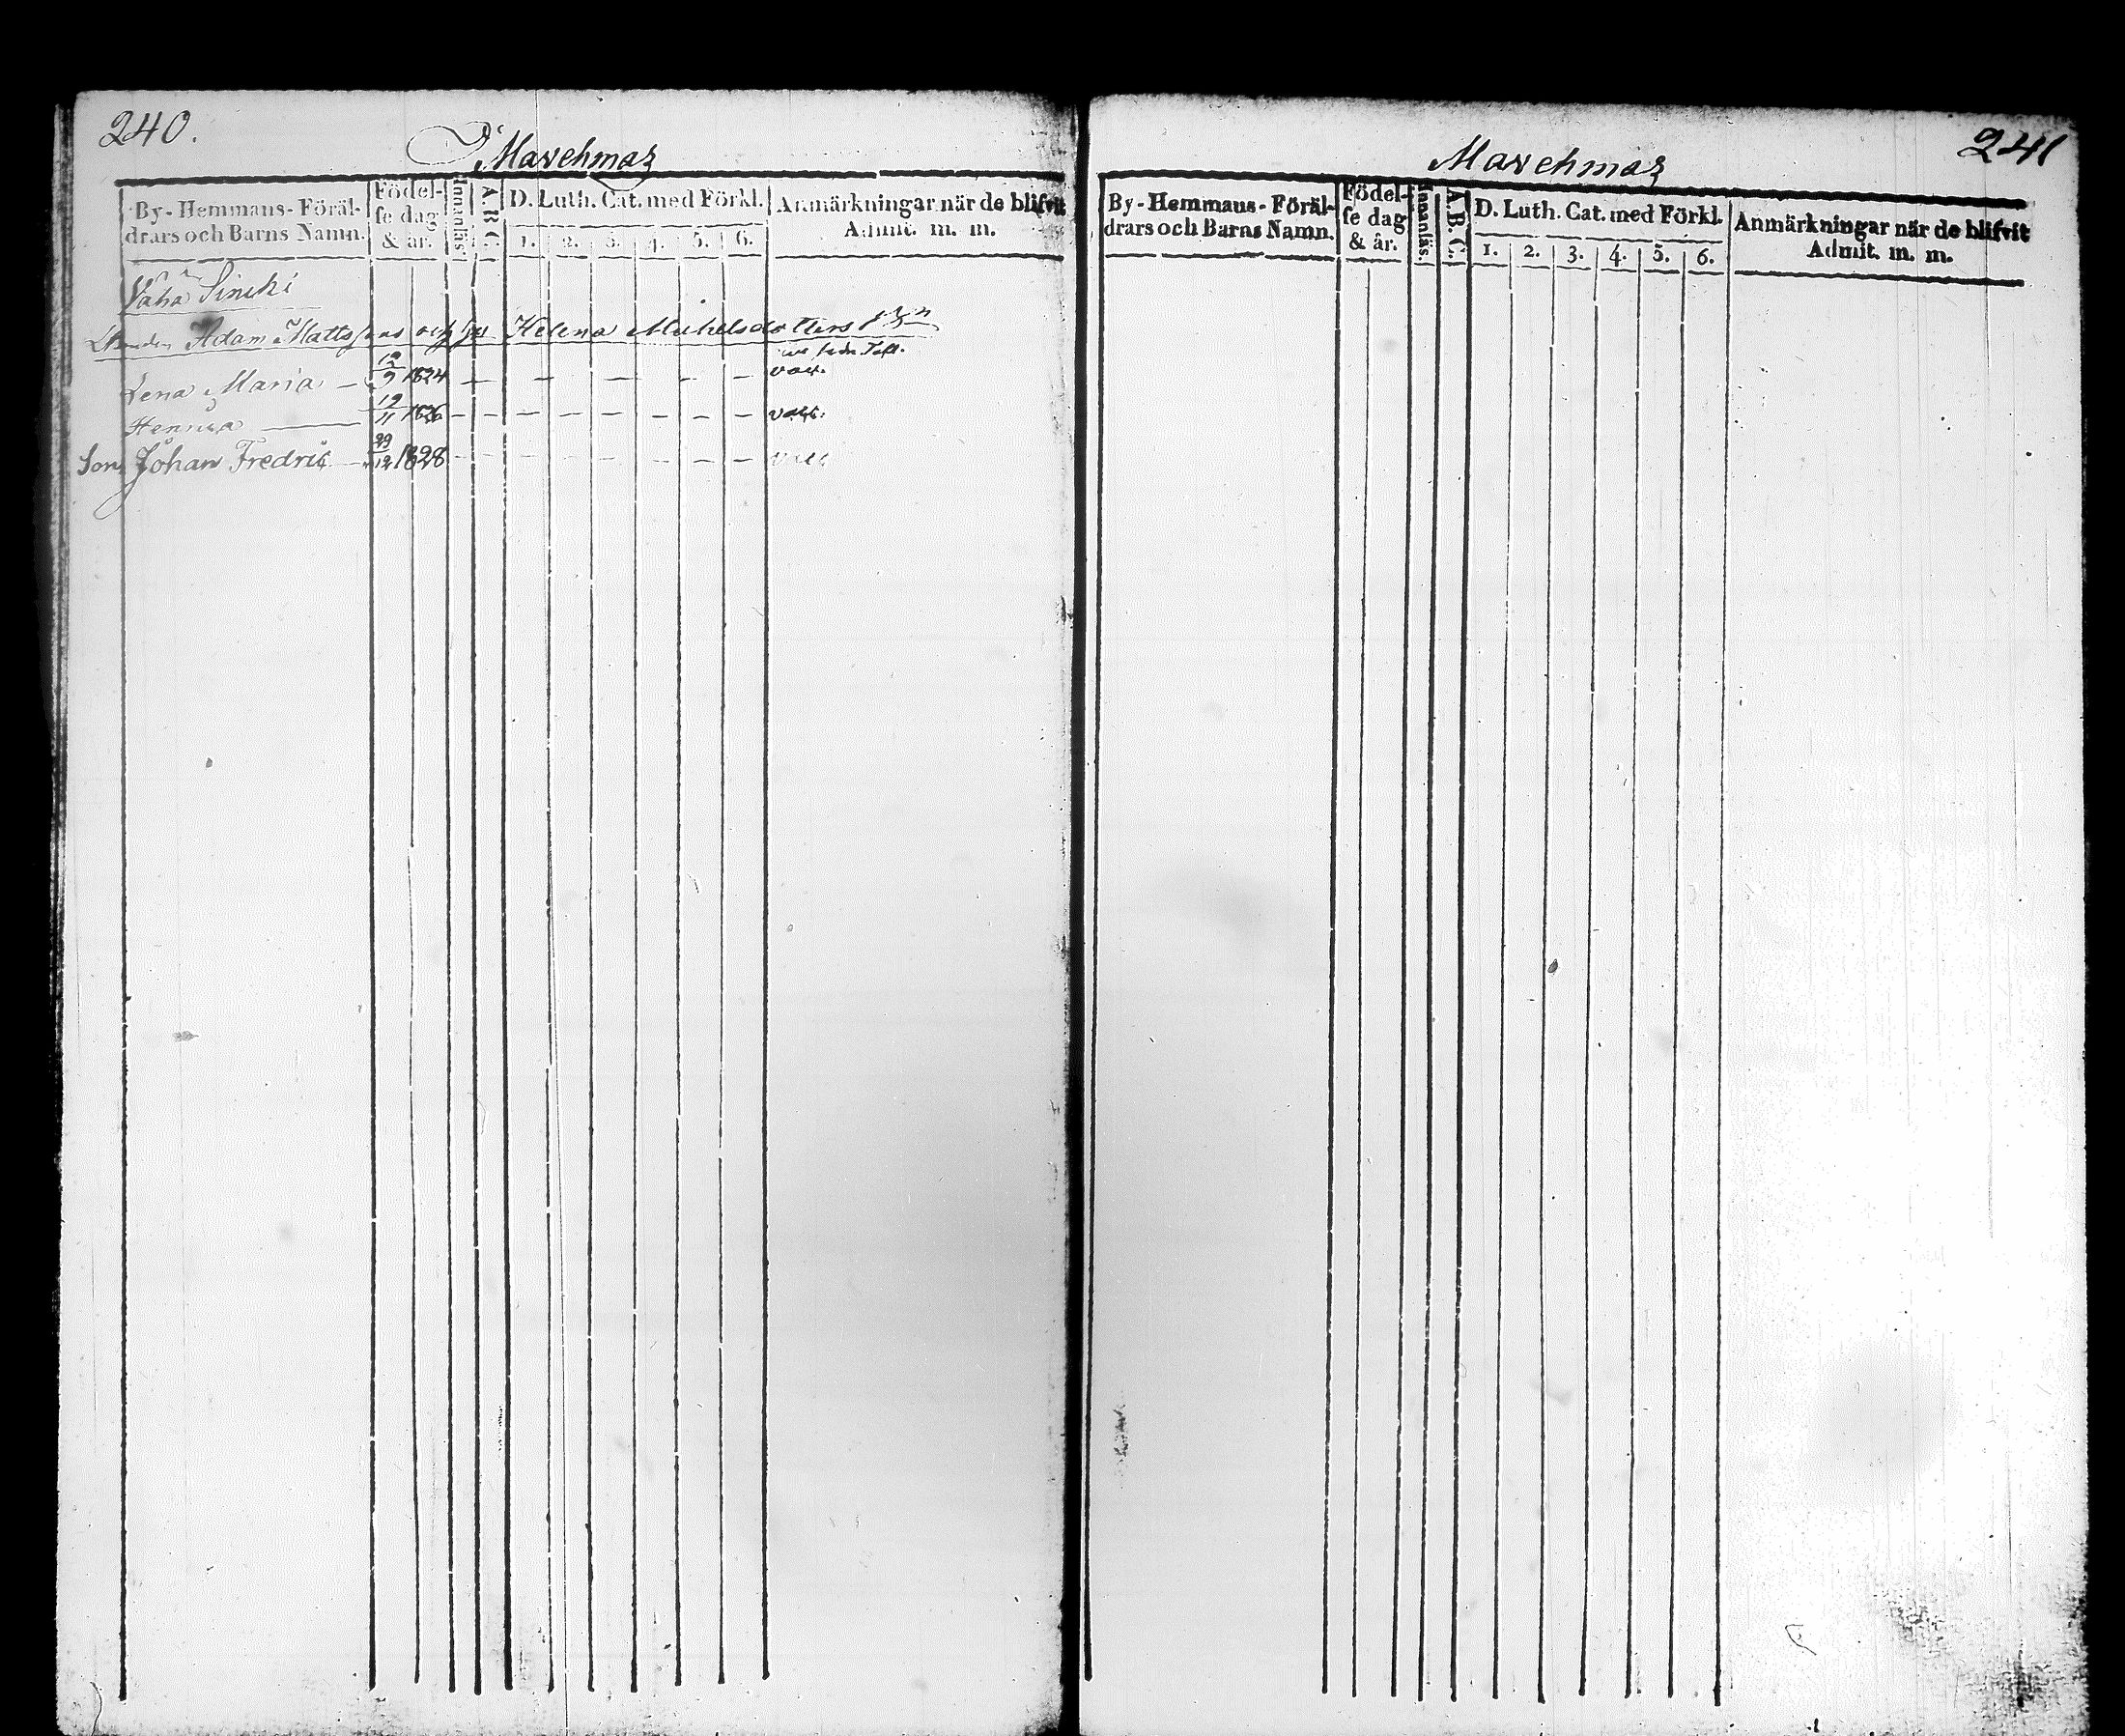 240.
Marehmaz
By-Hemmans-Föräl-
drars och Barns Namn.
Födel-
se dag
& år.
Innanläs.
A.B.C.
D. Luth. Cat. med Förkl.
1. 2. 3. 4. 5. 6.
Anmärkningar när de blifvit
Admit. m. m.
Vähä Sinchi
Adam Mattssons och Helena Michelsdotters
Lena Maria — 12/9 1824 — — — — — —
Henrica — 19/11 1826 — — — — — — —
Son Johan Fredric — 29/12 1828 — — — — — — —
241
Marehmaz
By-Hemmans-Föräl-
drars och Barns Namn.
Födel-
se dag
& år.
Innanläs.
A.B.C.
D. Luth. Cat. med Förkl.
1. 2. 3. 4. 5. 6.
Anmärkningar när de blifvit
Admit. m. m.